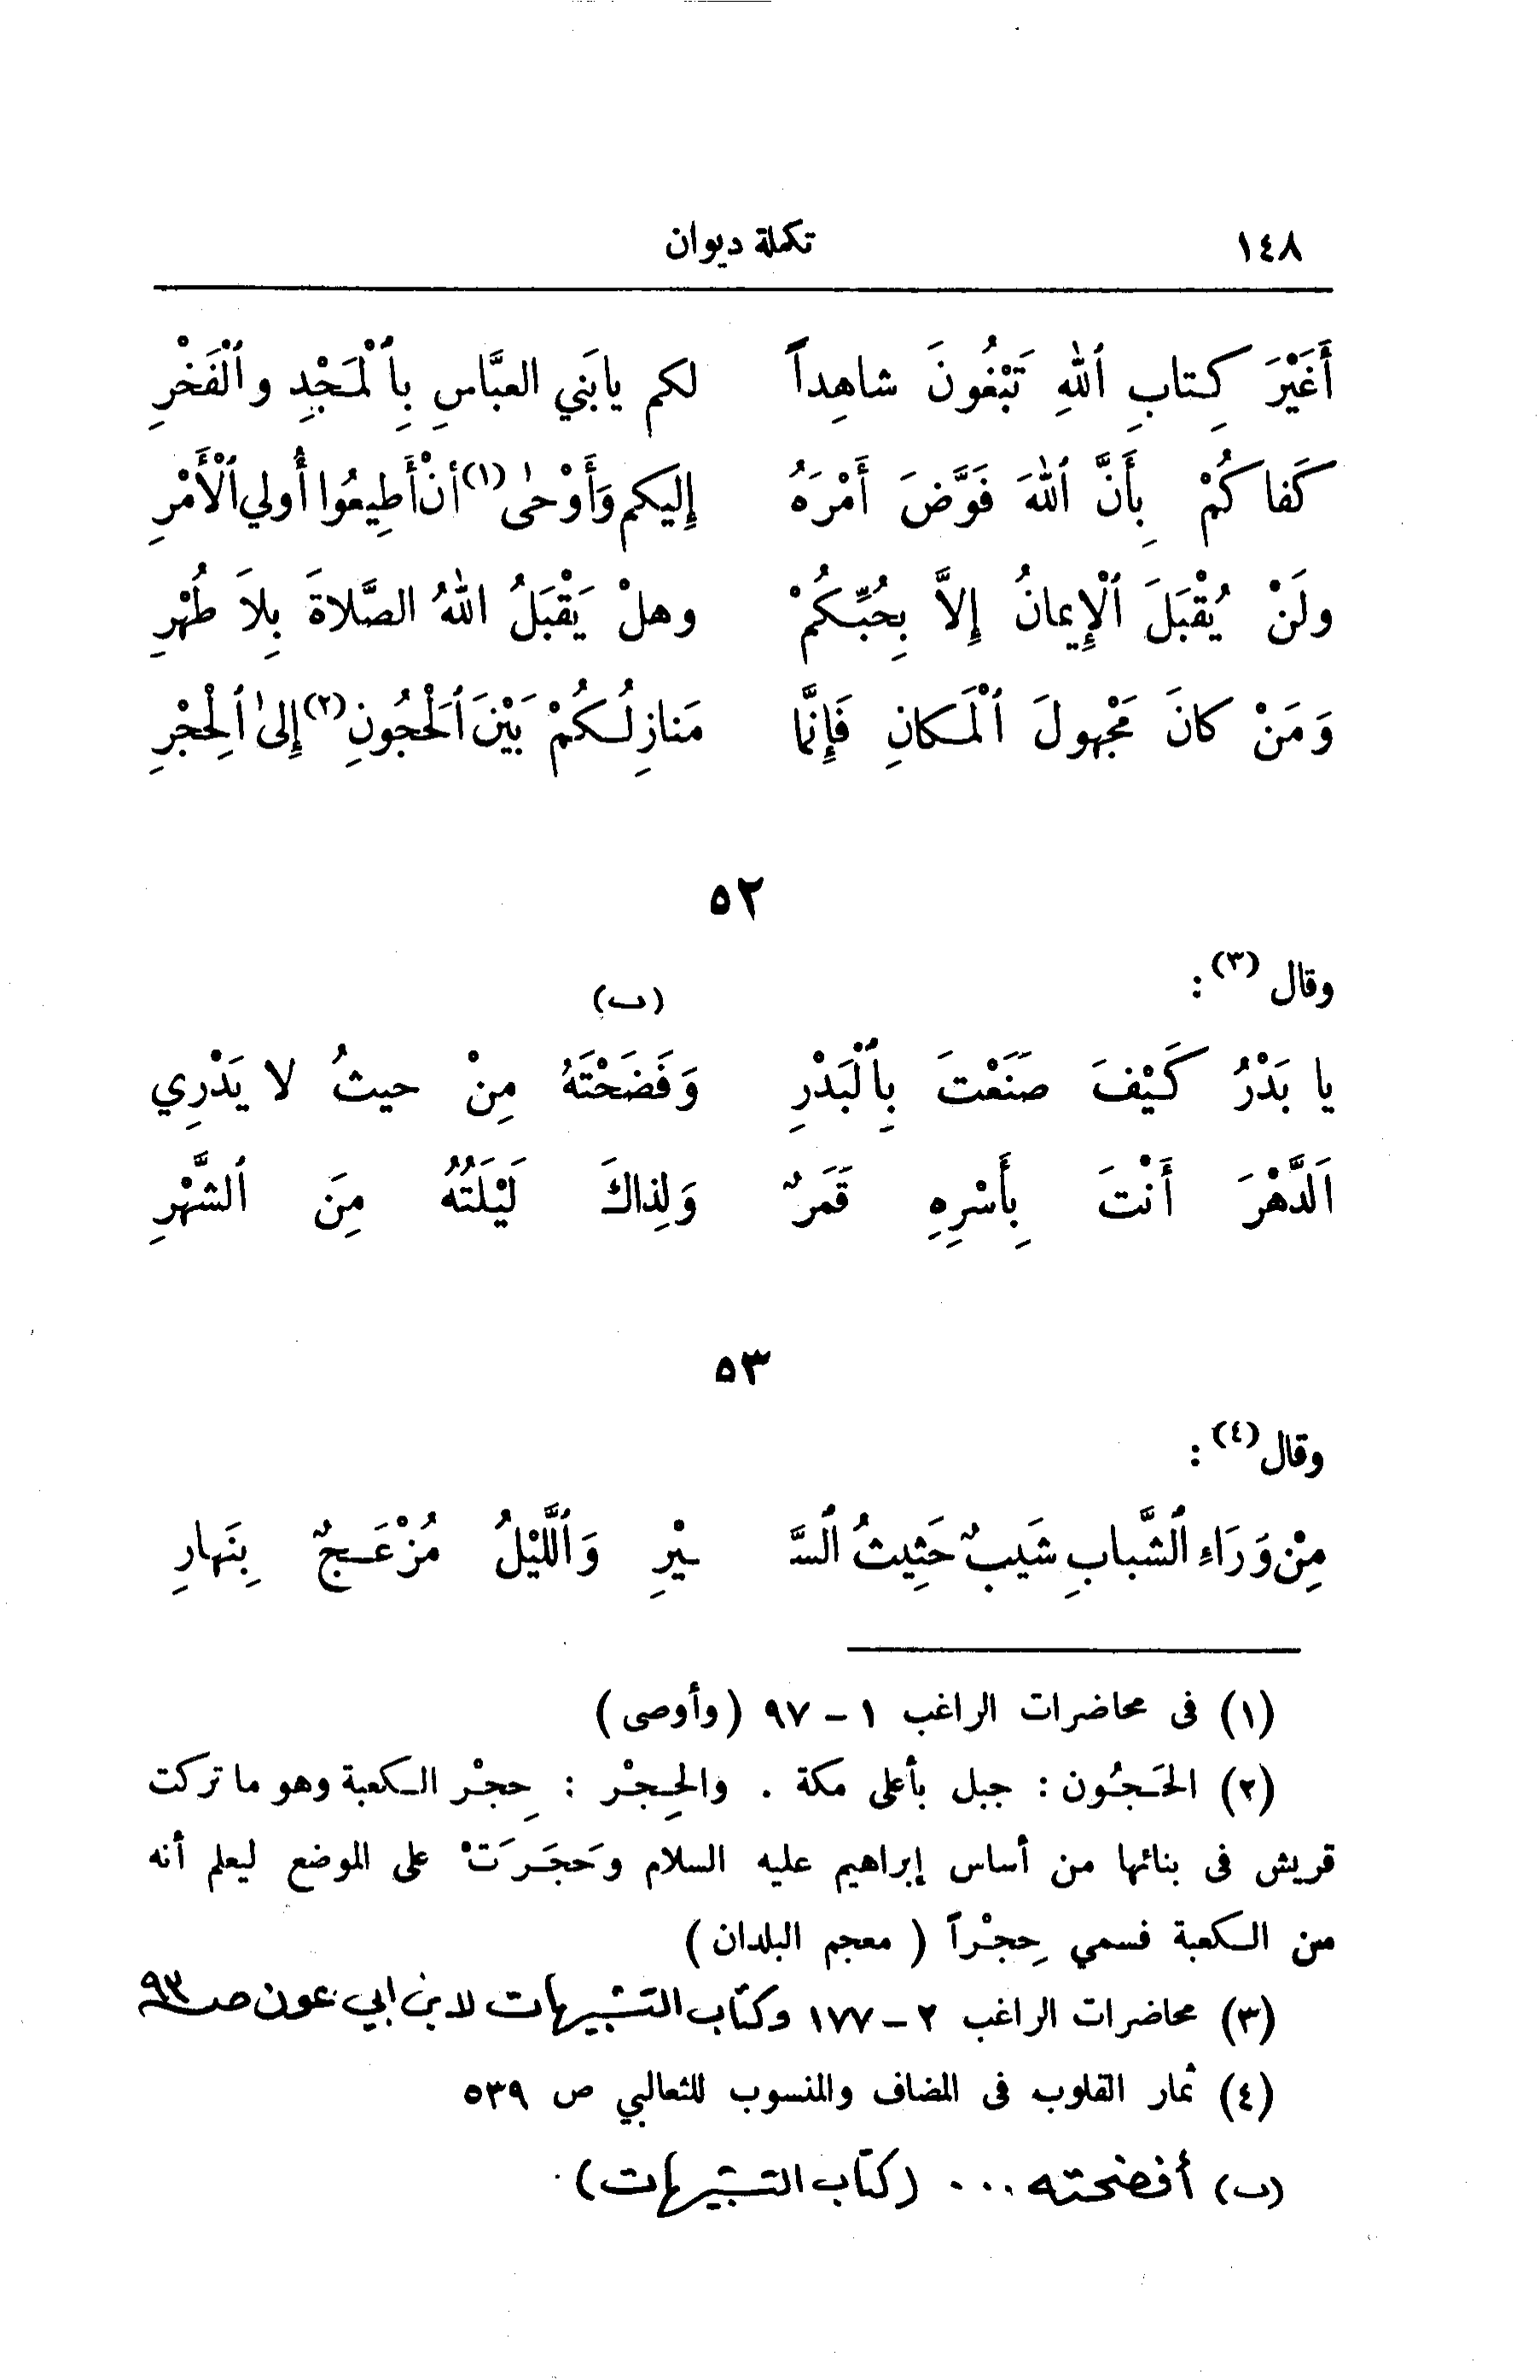 ١٤٨ تكملة ديوان
أَغَيْرَ كِتابِ ٱللهِ تَبْغُونَ شاهِداً لكم يابَني العبَّاسِ بِٱلْمَجْدِ وٱلْفَخْرِ
كَفاكُمْ بِأَنَّ ٱللهَ فَوَّضَ أَمْرَهُ إِليكم وَأَوْحٰى(١) أنْ أَطِيعُوا أُولي ٱلْأَمْرِ
ولَنْ يُقْبَلَ ٱلْإِيمانُ إِلاَّ بِحُبِّكُمْ وهلْ يَقْبَلُ اللهُ الصَّلاةَ بِلاَ طُهْرِ
وَمَنْ كانَ مَجْهولَ ٱلْمَكانِ فَإِنَّما مَنازِلُكُمْ بَيْنَ ٱلَحْجُونِ(٢) إِلىٰ ٱلِحْجْرِ
٥٢
وقال (٣) :
(ب)
يا بَدْرُ كَيْفَ صَنَعْتَ بِٱلْبَدْرِ وَفَضَحْتَهُ مِنْ حيثُ لا يَدْرِي
اَلدَّهْرَ أَنْتَ بِأَسْرِهِ قَمَرٌ وَلِذاكَ لَيْلَتُهُ مِنَ ٱلشَّهْرِ
٥٣
وقال (٤) :
مِنْ وَرَاءِ ٱلشَّبابِ شَيبٌ حَثِيثُ ٱلسَّـ ـيْرِ وَٱللَّيْلُ مُزْعَـجٌ بِنَهارِ
(١) فى محاضرات الراغب ١ – ٩٧ (وأوصى)
(٢) الحَجُون : جبل بأعلى مكة . والحِجْر : حِجْر الكعبة وهو ما تركت
قريش فى بنائها من أساس إبراهيم عليه السلام وحَجَرَتْ على الموضع ليعلم أنه
من الكعبة فسمي حِجْراً ( معجم البلدان )
(٣) محاضرات الراغب ٢ – ١٧٧ وكتاب التشبيهات لابن ابي عون صـ ٩٣
(٤) ثمار القلوب فى المضاف والمنسوب للثعالبي ص ٥٣٩
(ب) أفضحته ... (كتاب التشبيهات)